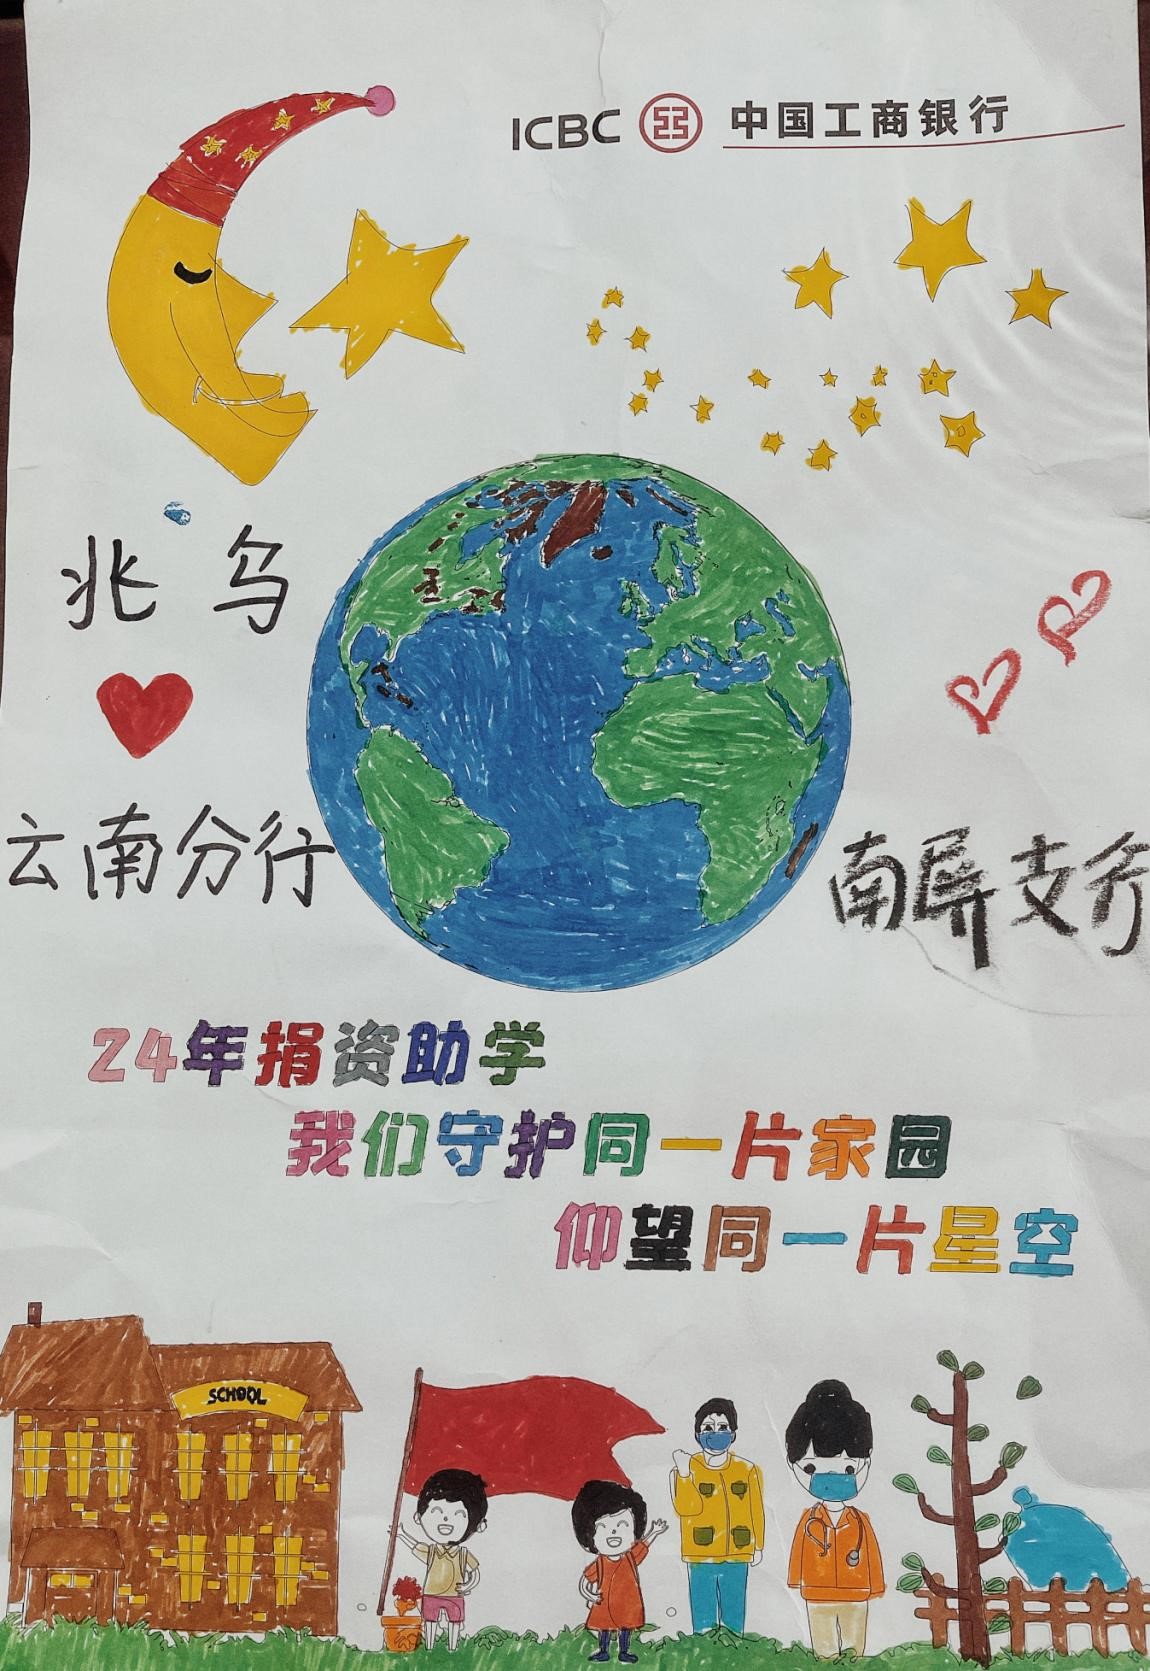 ICBC 中国工商银行
北 乌
云南分行
南屏支行
24年捐资助学
我们守护同一片家园
仰望同一片星空
SCHOOL